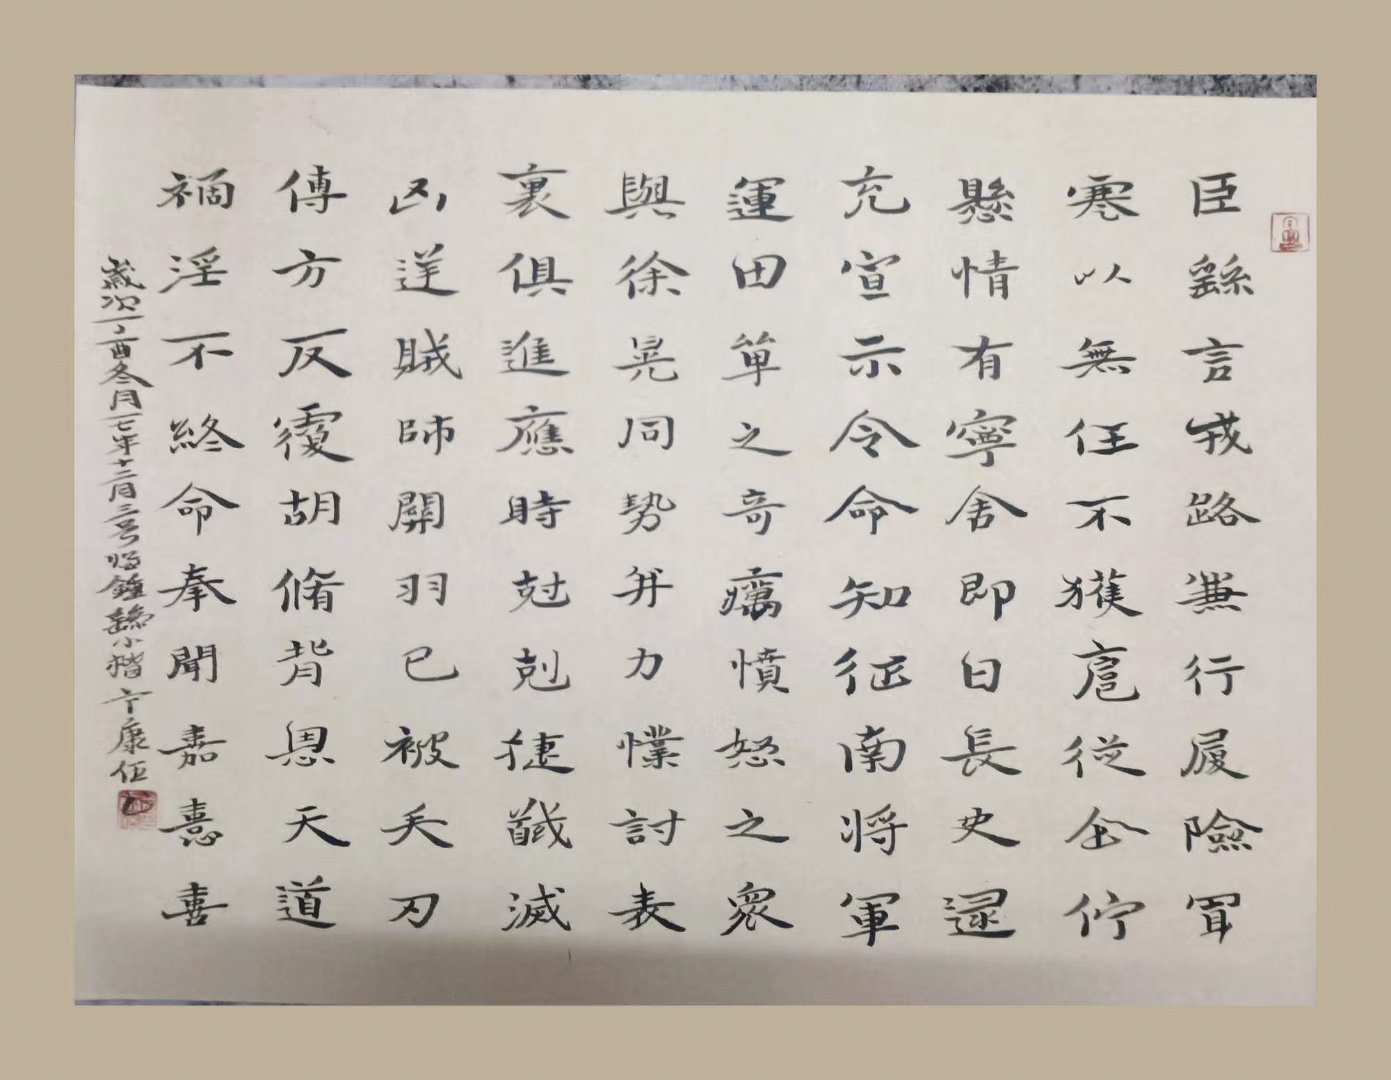 臣繇言戎路兼行履險冒
寒以無任不獲扈從企佇
懸情有寧舍即日長史逯
充宣示令命知征南將軍
運田單之奇癘憤怒之眾
與徐晃同勢并力撲討表
裏俱進應時尅剋捷馘滅
凶逆賊帥關羽已被矢刃
傅方反覆胡脩背恩天道
禍淫不終命奉聞嘉憙喜
歲次丁酉冬月一七年十二月三号临鍾繇小楷